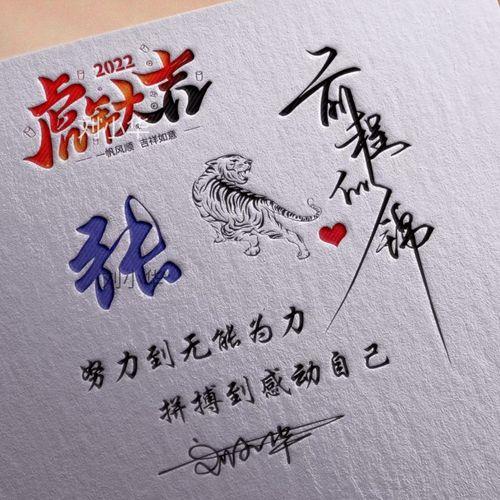 2022
虎年大吉
一帆风顺 吉祥如意
前程似锦
张
努力到无能为力
拼搏到感动自己